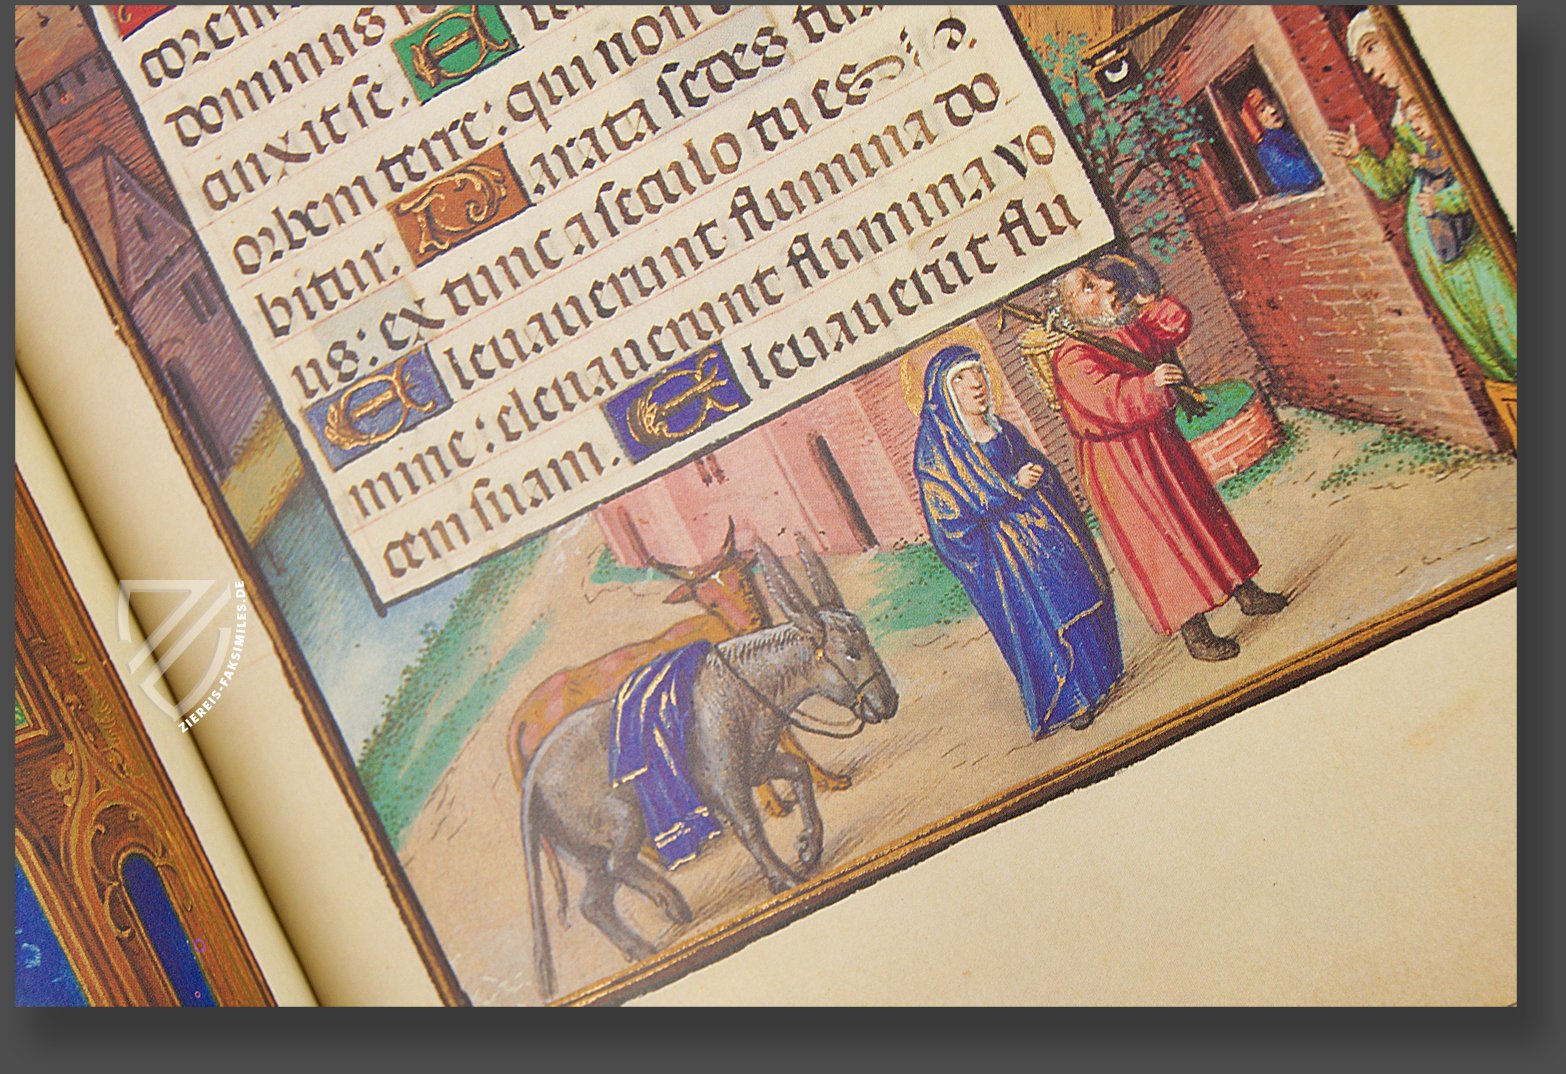 dominus
cinxit se. E
orbem terre: qui non
bitur. Parata sedes
us: ex tunc a seculo tu es
Eleuauerunt flumina do
mine: eleuauerunt flumina vo
cem suam. Eleuauerūt flu
ZIEREIS-FAKSIMILES.DE